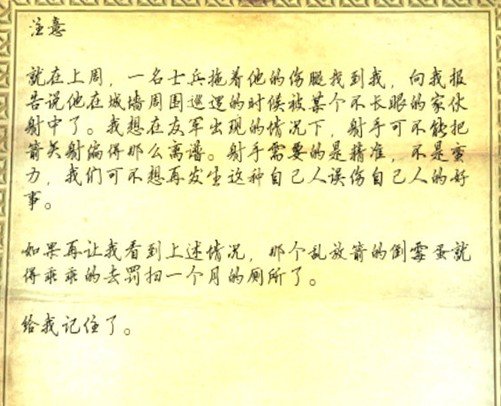 注意
就在上周，一名士兵拖着他的伤腿找到我，向我报
告说他在城墙周围巡逻的时候被某个不长眼的家伙
射中了。我想在友军出现的情况下，射手可不能把
箭矢射偏得那么离谱。射手需要的是精准，不是蛮
力，我们可不想再发生这种自己人误伤自己人的好
事。
如果再让我看到上述情况，那个乱放箭的倒霉蛋就
得乖乖的去罚扫一个月的厕所了。
给我记住了。